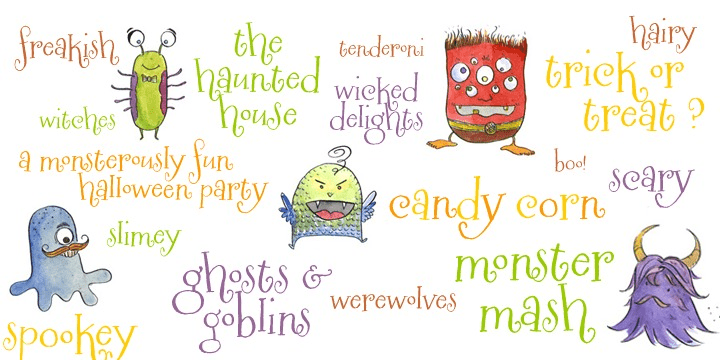 freakish
the
haunted
house
tenderoni
hairy
trick or
treat ?
witches
wicked
delights
a monsterously fun
halloween party
boo!
scary
candy corn
slimey
ghosts &
goblins
werewolves
monster
mash
spookey